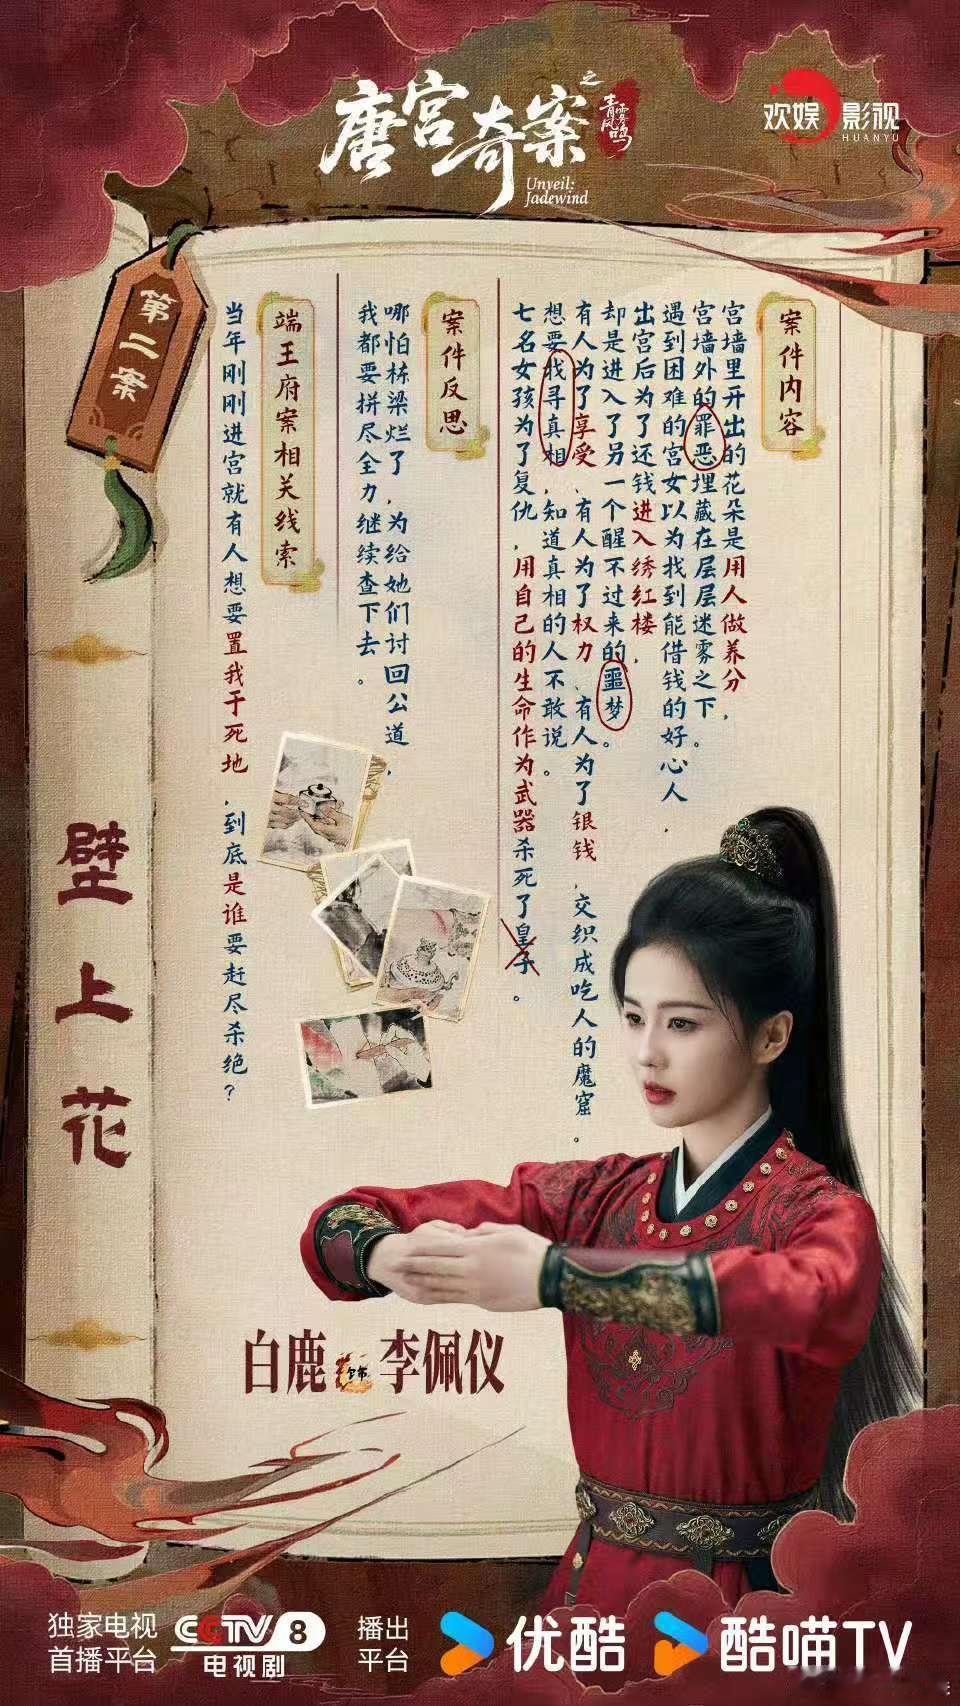 唐宫奇案
之
青雾风鸣
Unveil:
Jadewind
欢娱影视
HUANYU
第二案
壁上花
案件内容
宫墙里开出的花朵是用人做养分，
宫墙外的罪恶埋藏在层层迷雾之下。
遇到困难的宫女以为找到能借钱的好心人，
出宫后为了还钱进入绣红楼，
却是进入了另一个醒不过来的噩梦。
有人为了享受、有人为了权力、有人为了银钱，交织成吃人的魔窟。
想要找寻真相，知道真相的人不敢说。
七名女孩为了复仇，用自己的生命作为武器杀死了皇子。
案件反思
哪怕栋梁烂了，为给她们讨回公道，
我都要拼尽全力继续查下去。
端王府案相关线索
当年刚刚进宫就有人想要置我于死地，到底是谁要赶尽杀绝？
白鹿 饰 李佩仪
独家电视
首播平台
CCTV 8
电视剧
播出
平台
优酷
酷喵TV